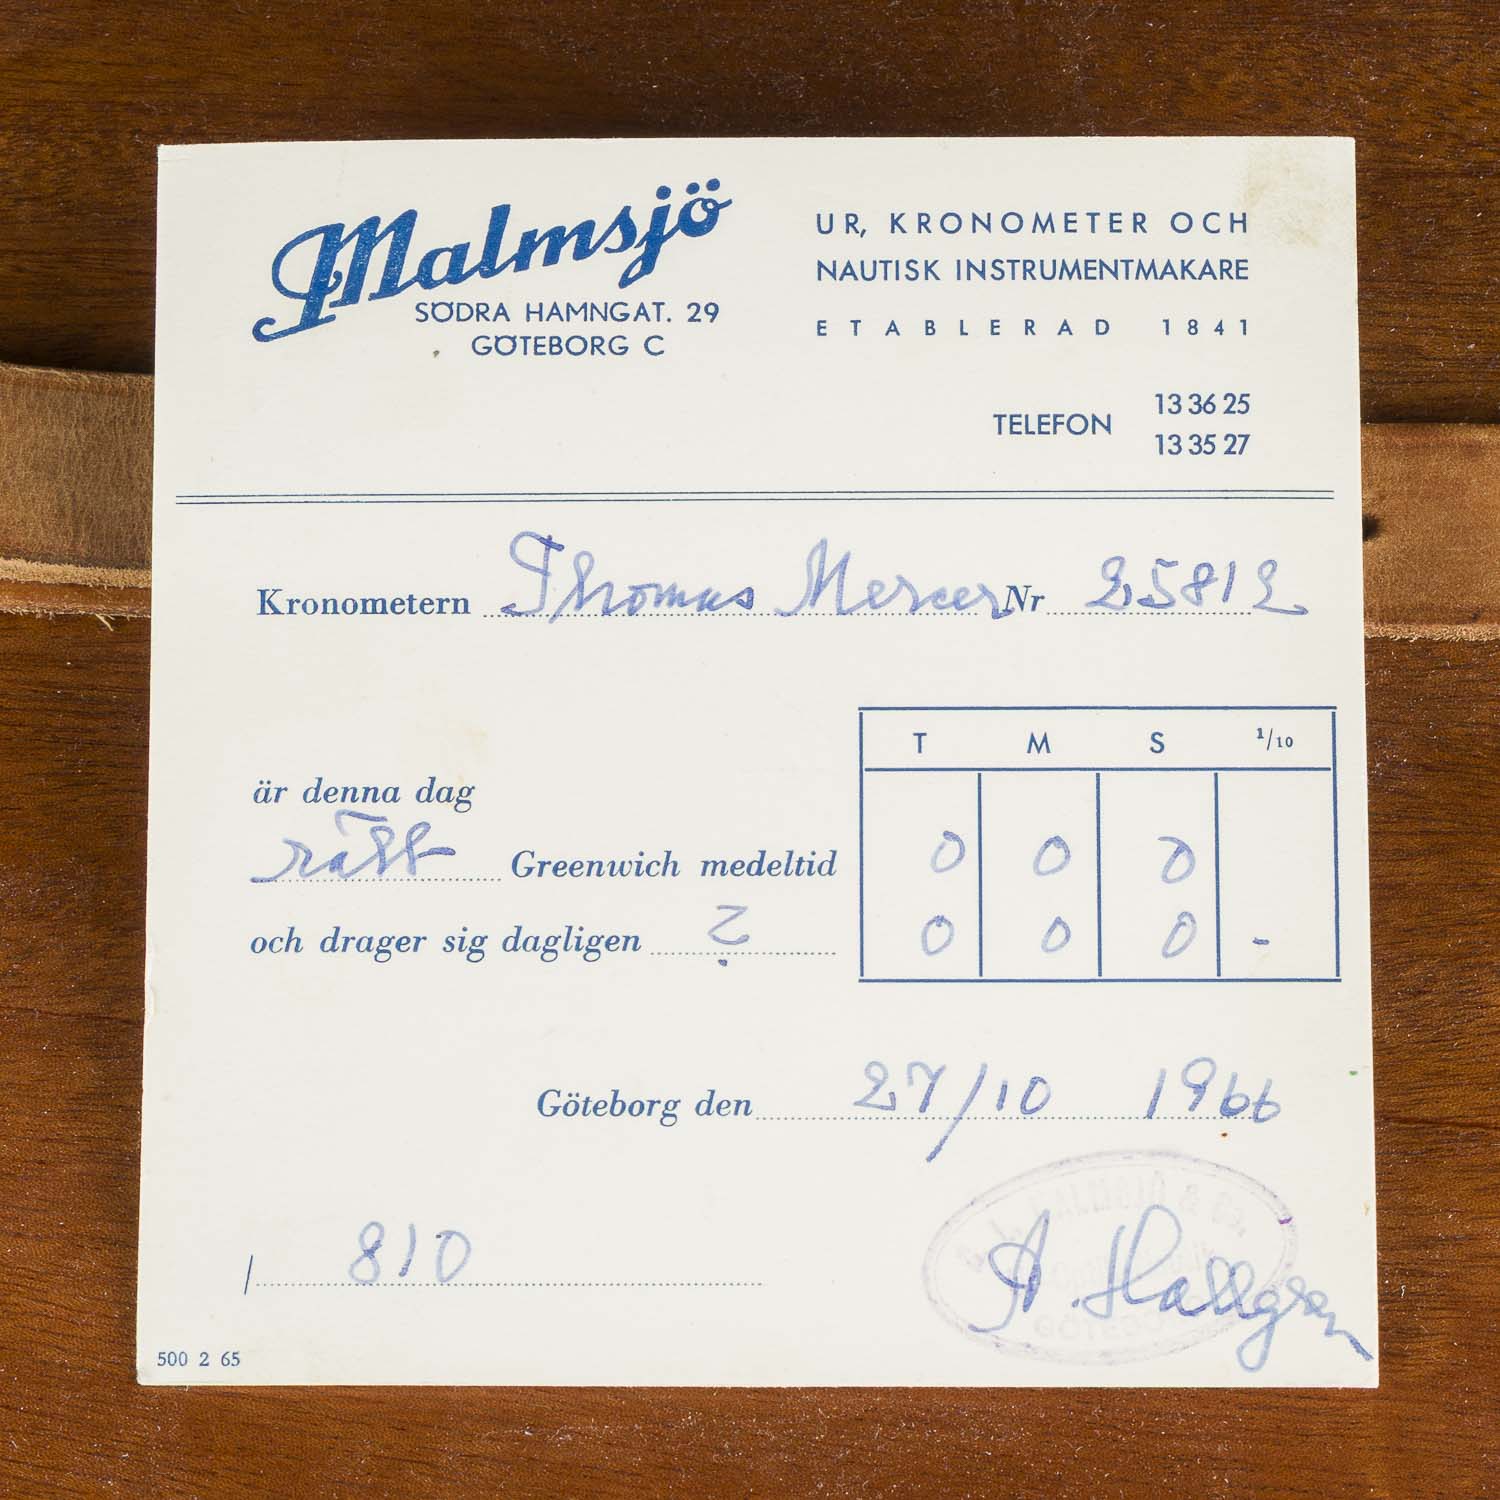 Malmsjö
SÖDRA HAMNGAT. 29
GÖTEBORG C
UR, KRONOMETER OCH
NAUTISK INSTRUMENTMAKARE
ETABLERAD 1841
TELEFON 13 36 25
13 35 27
Kronometern Thomas Mercer Nr 25812
T M S 1/10
är denna dag
rätt Greenwich medeltid 0 0 0
och drager sig dagligen ? 0 0 0 -
Göteborg den 27/10 1966
/ 810
A. Hallgren
500 2 65